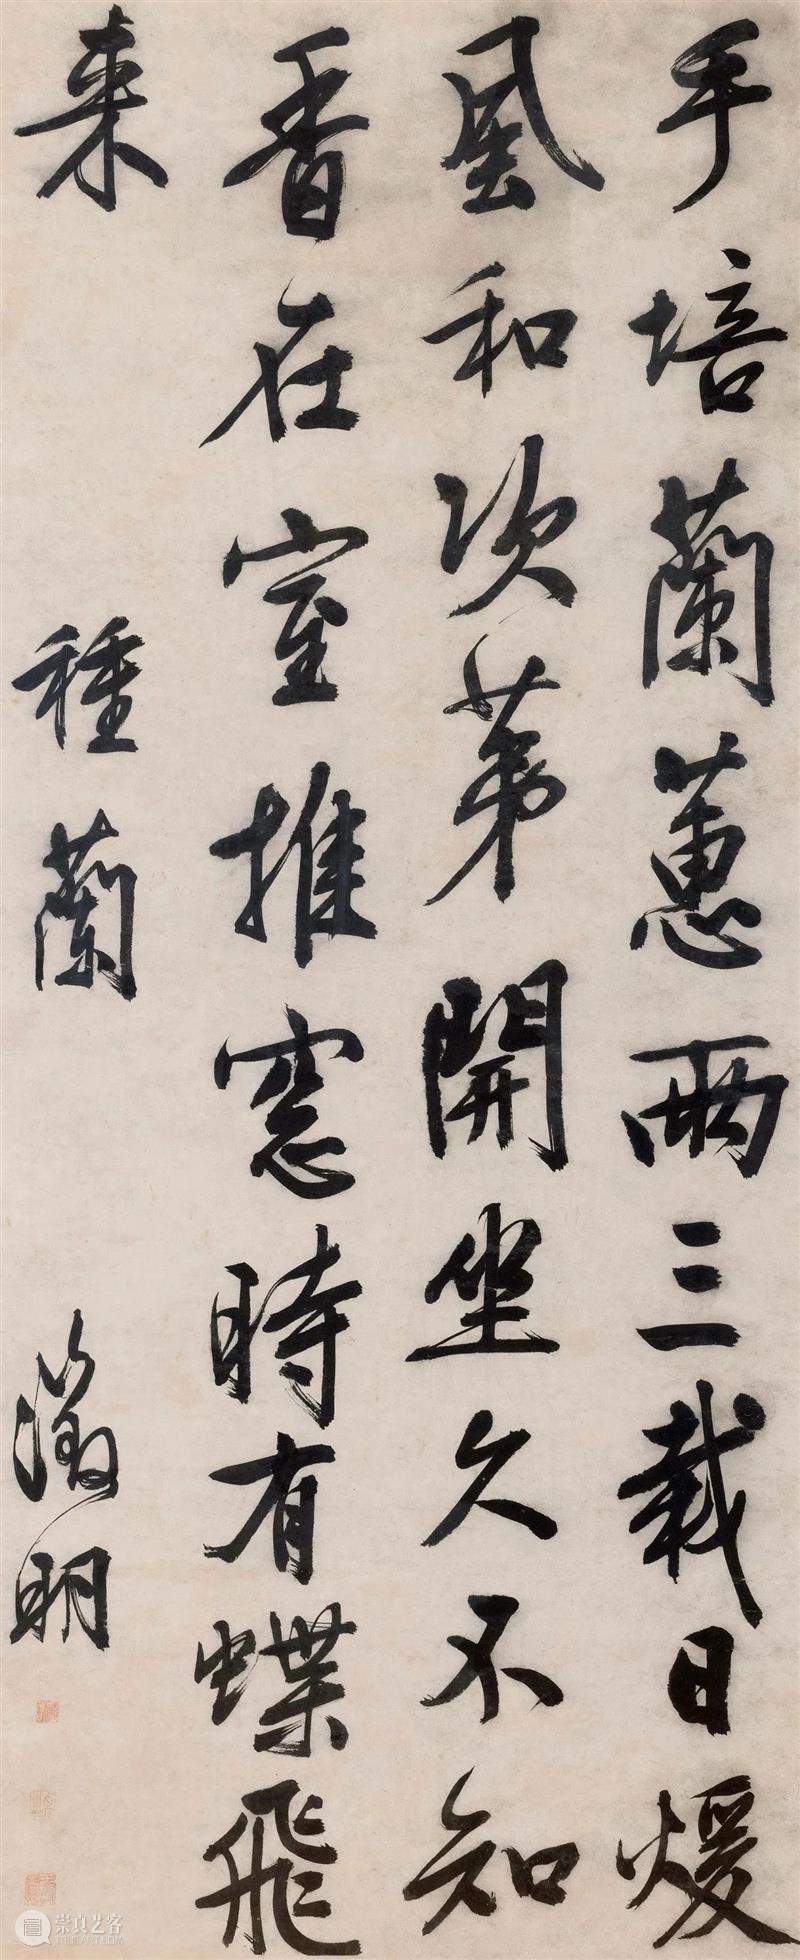 手培蘭蕙兩三載日煖
風和次苐開坐久不知
香在室推窓時有蝶飛
来
種蘭
徵明
崇真艺客